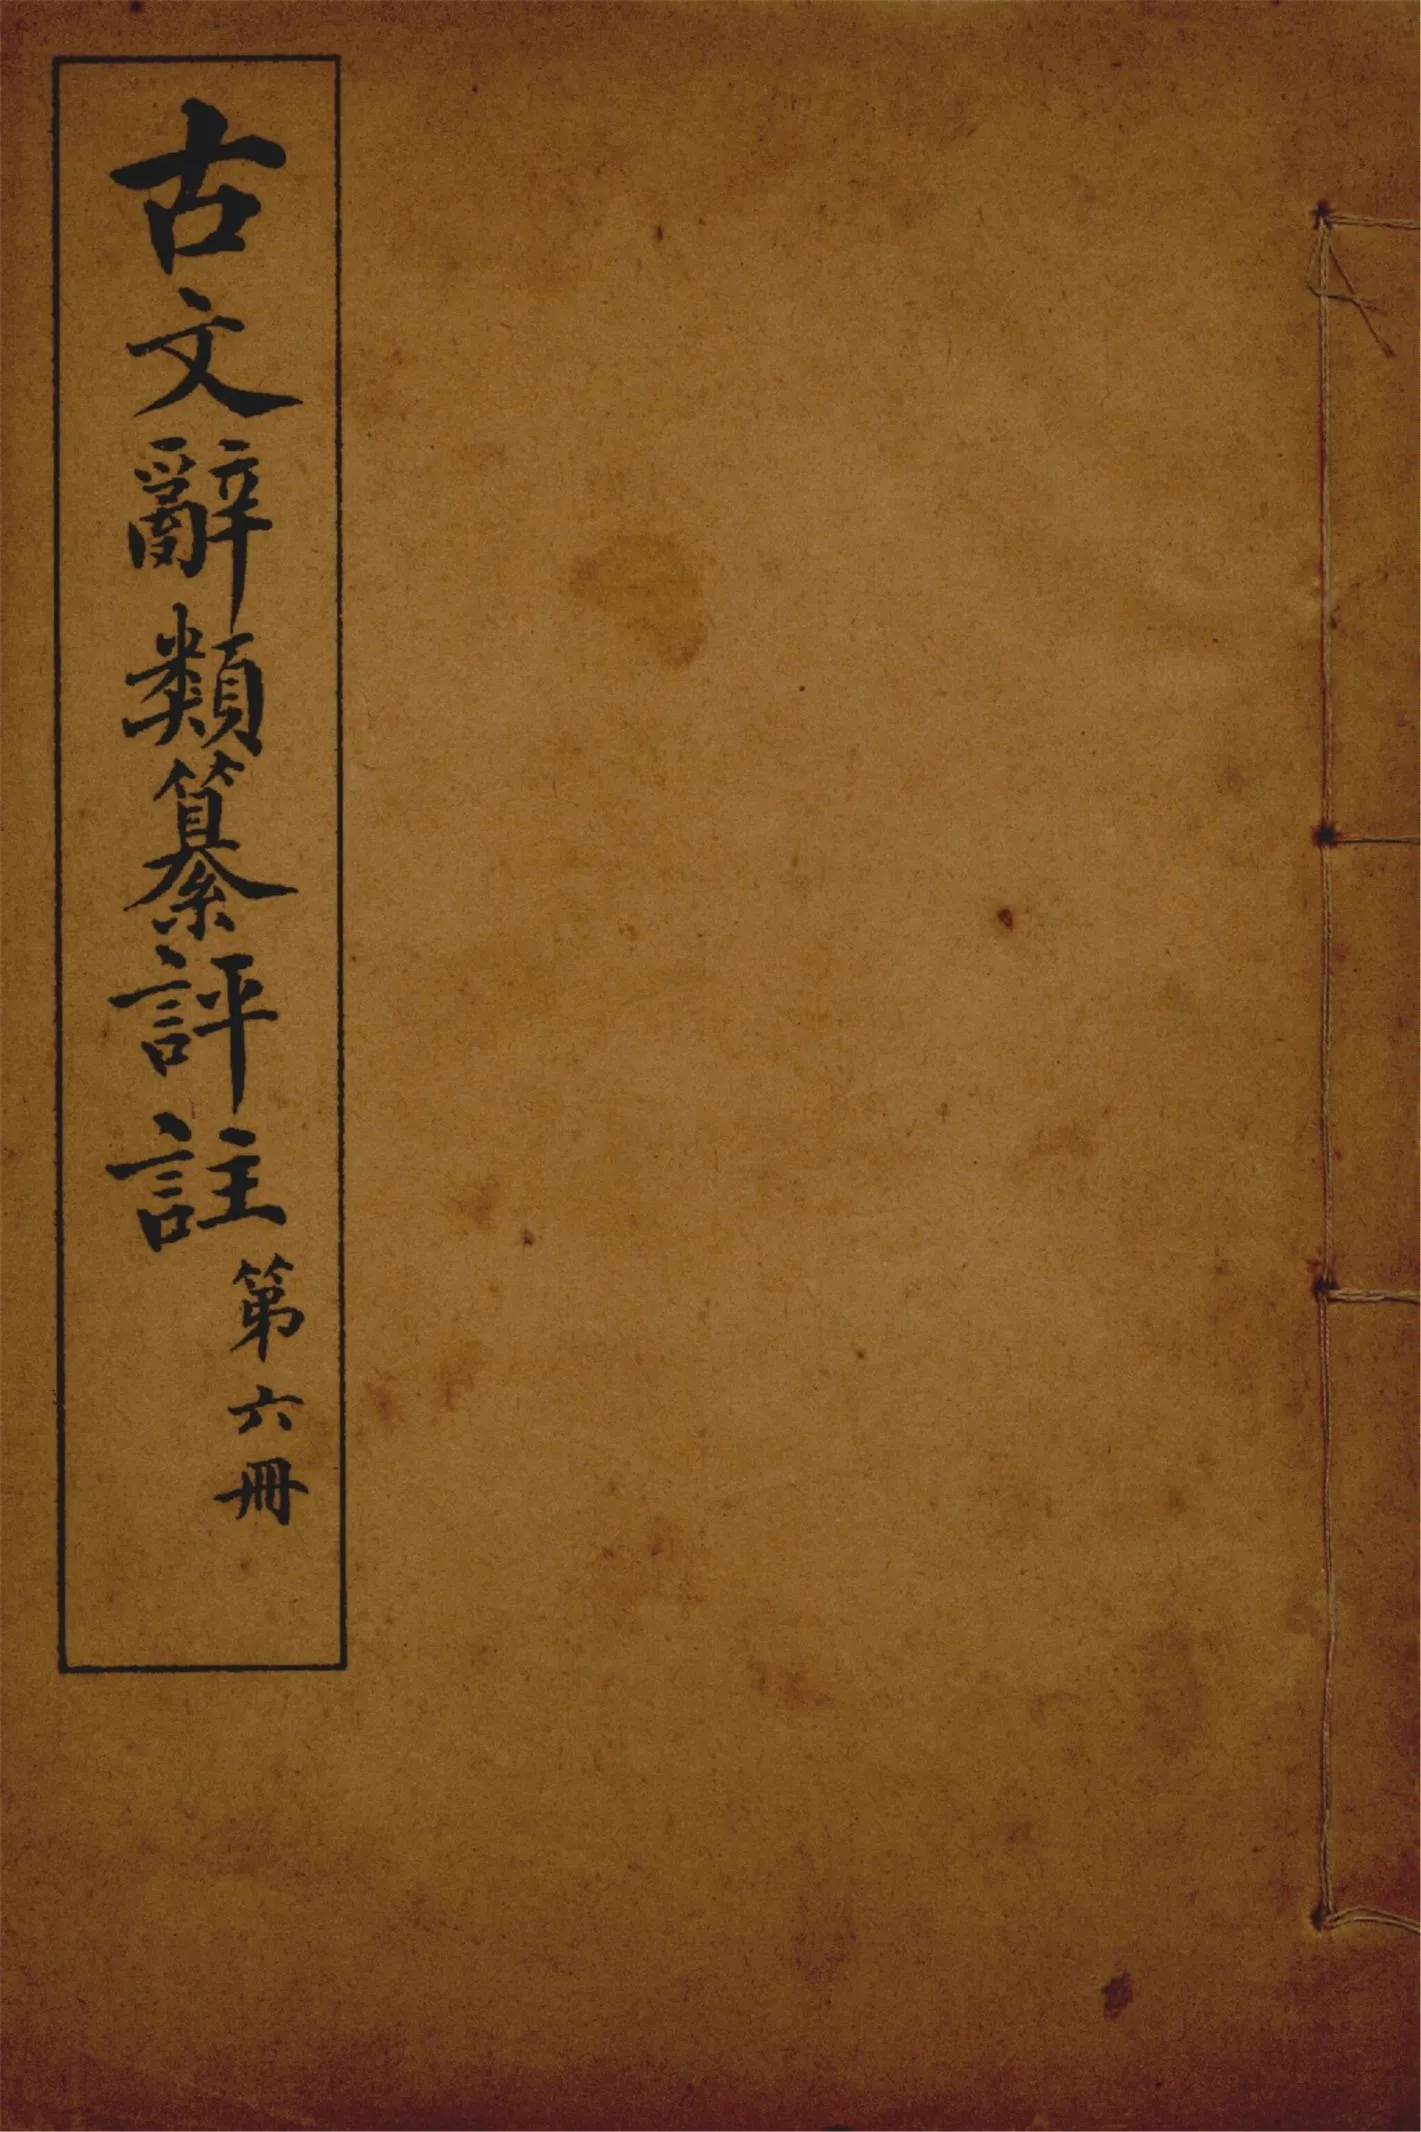 古文辭類纂評註
第六冊